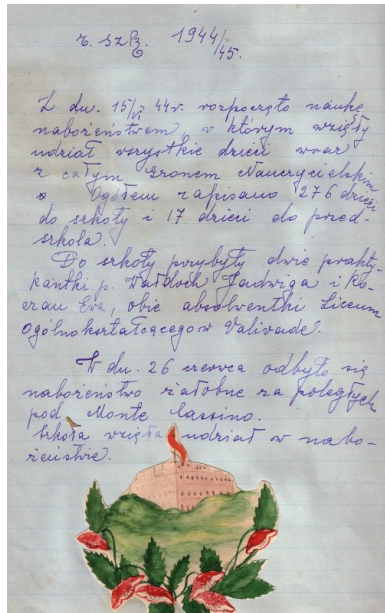 r. szk. 1944/45.
Z dn. 15/VI 44 r. rozpoczęto naukę
nabożeństwem, w którym wzięły
udział wszystkie dzieci wraz
z całym Gronem Nauczycielskim
Ogółem zapisano 276 dzieci
do szkoły i 17 dzieci do przed-
szkola.
Do szkoły przybyły dwie prakty
kantki p. Wałdoch Jadwiga i
Ewa, obie absolwentki Liceum
Ogólnokształcącego w Valivade.
W dn. 26 czerwca odbyło się
nabożeństwo żałobne za poległych
pod Monte Cassino.
Szkoła wzięła udział w nabo-
żeństwie.